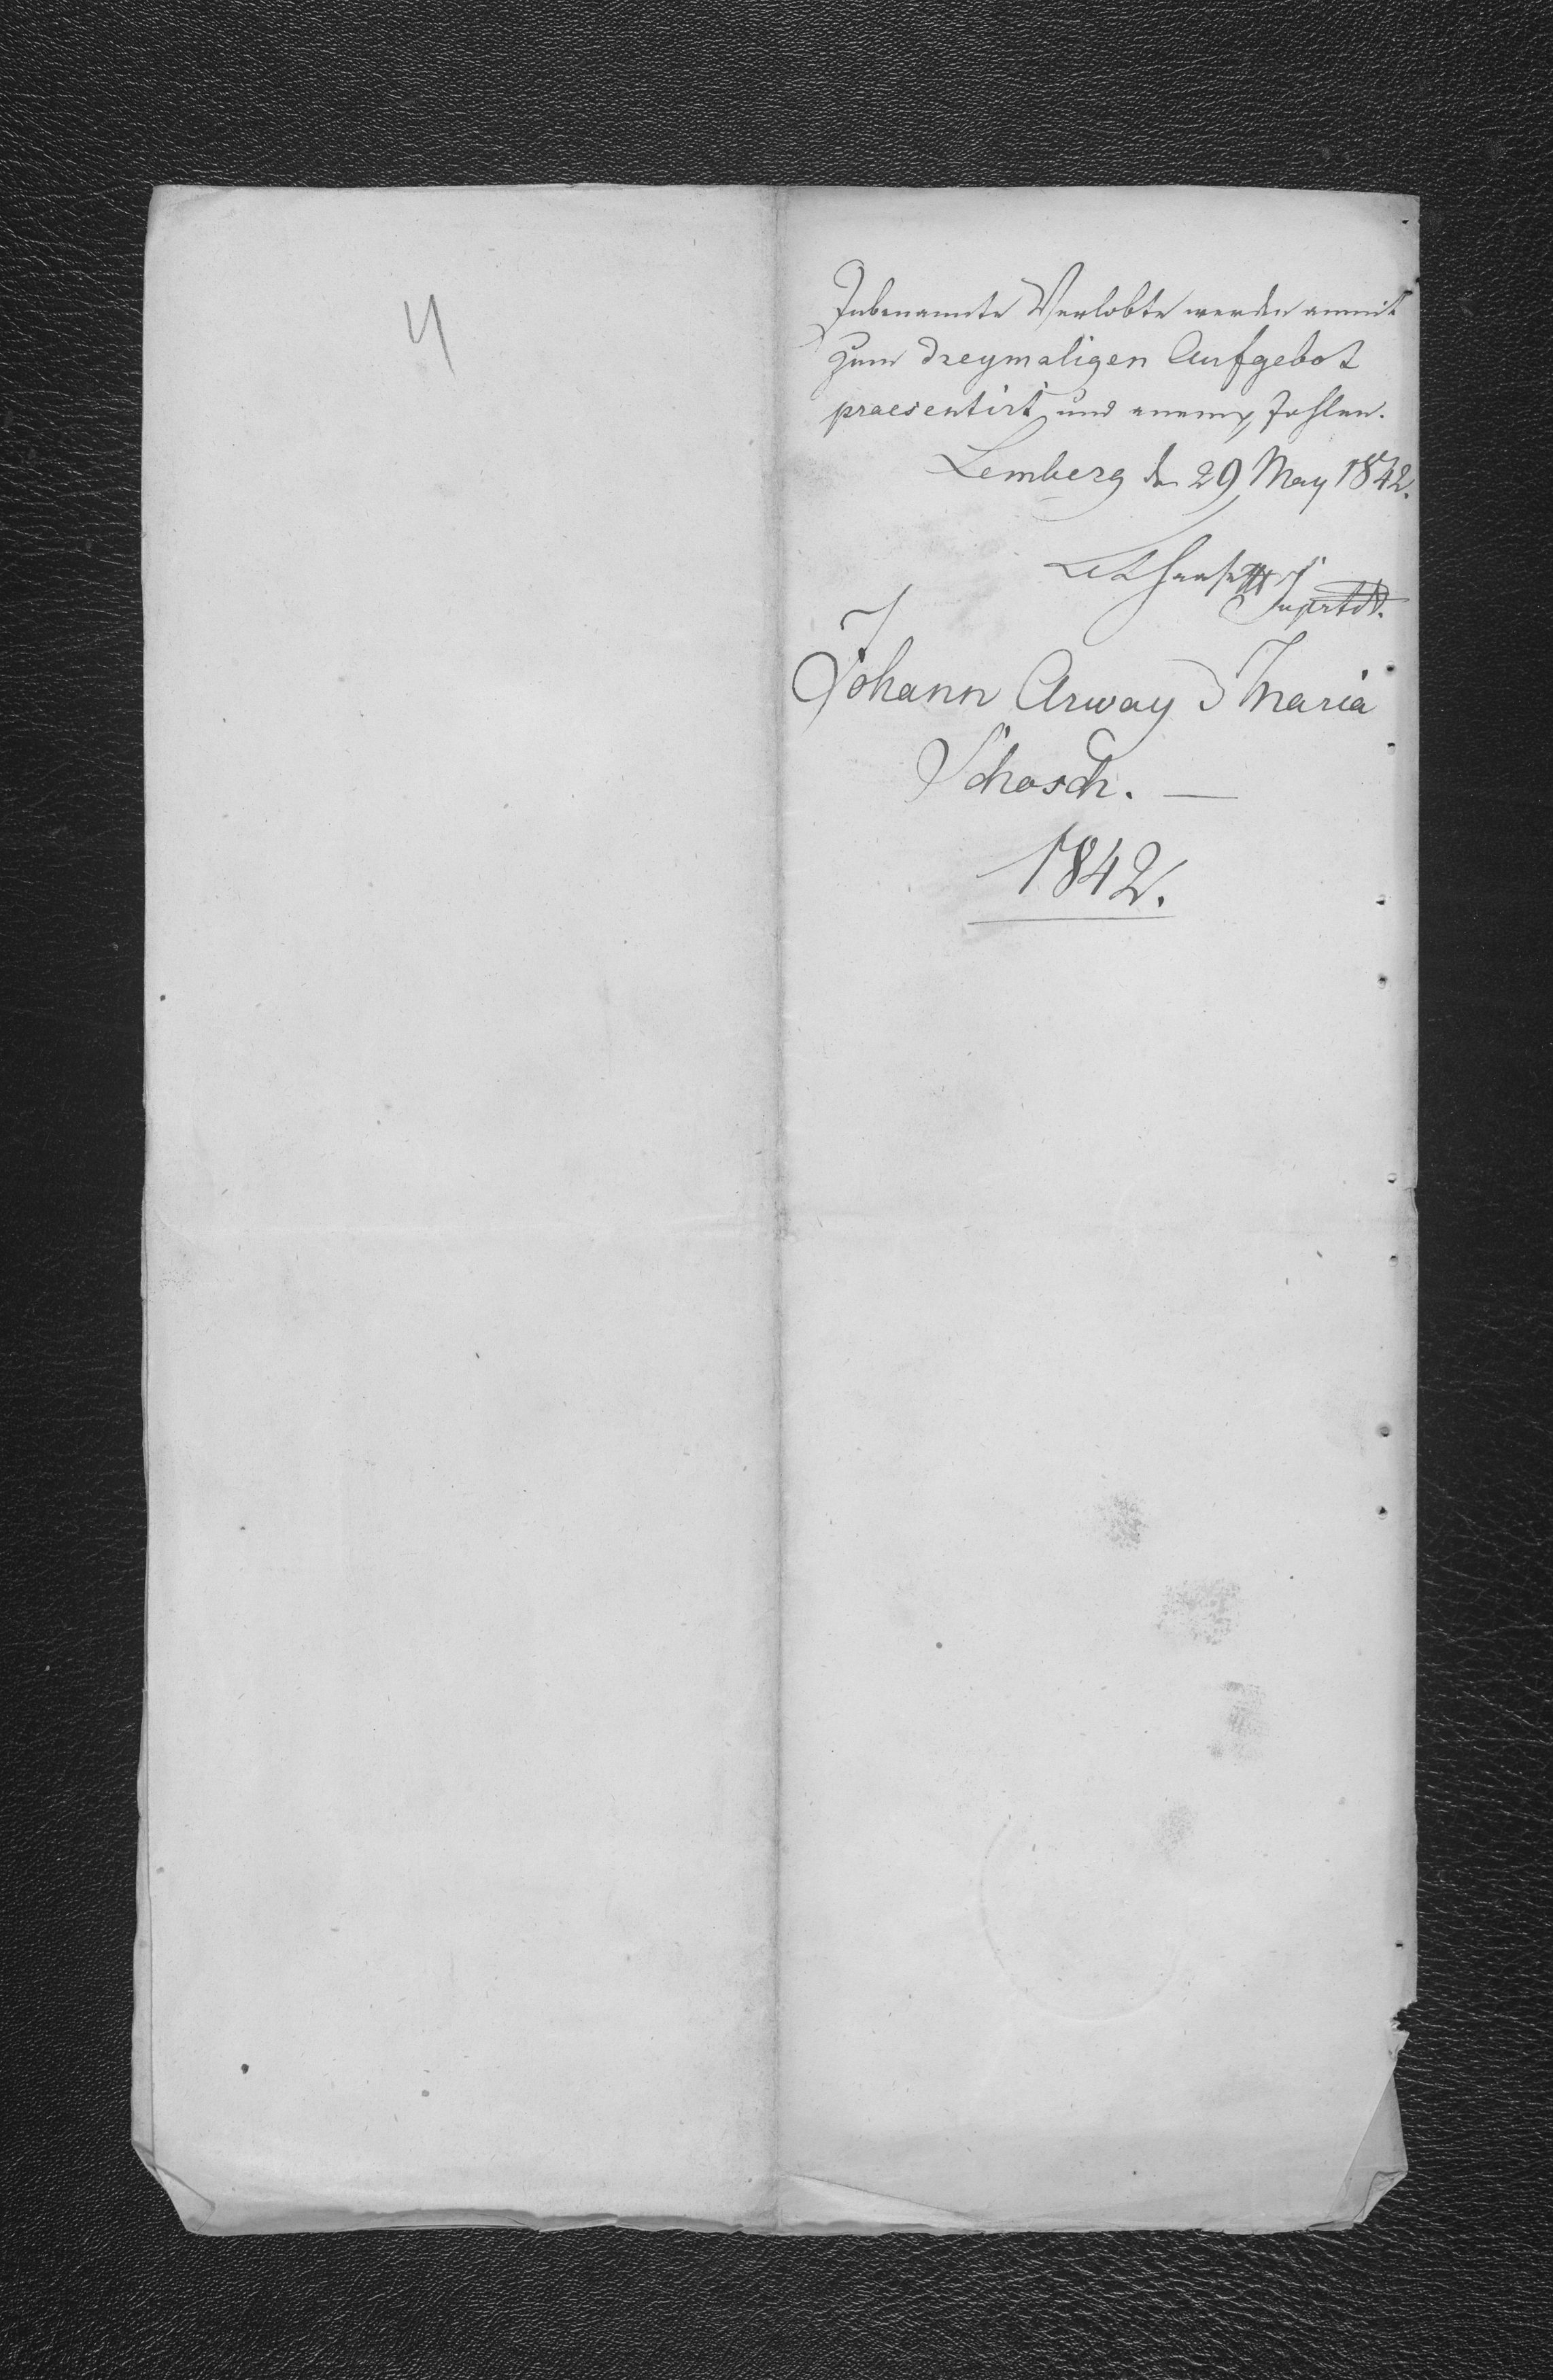 4
Inbenannte Verlobte werden anmit
zum dreymaligen Aufgebot
praesentirt und
Lemberg den 29 May 1842.
Johann Arway & Maria
Schosch. —
1842.